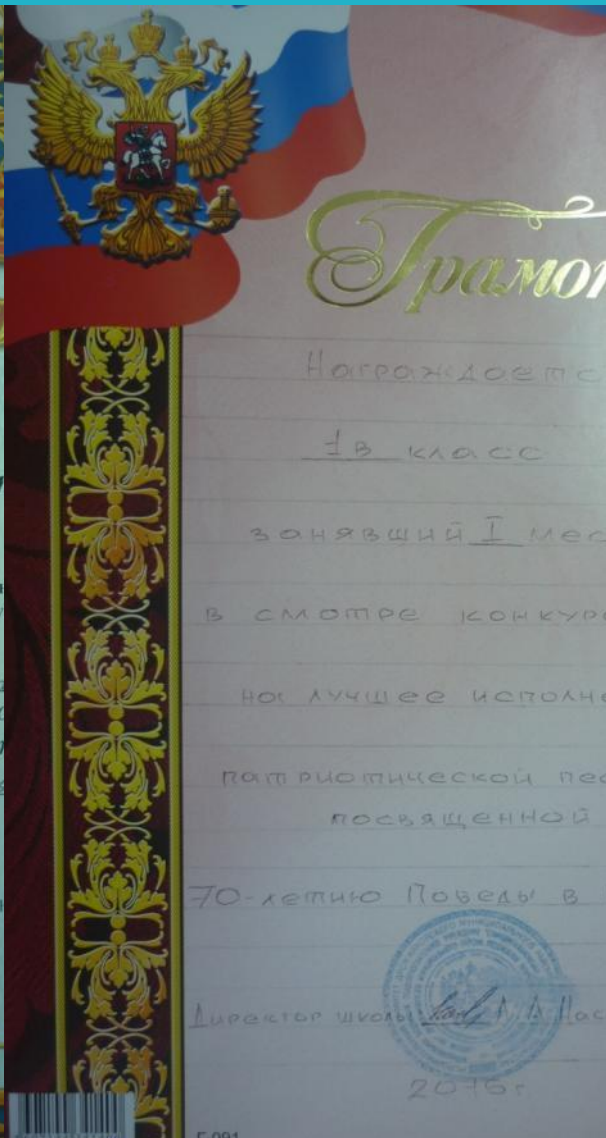 Грамот
Награждаетс
1в класс
занявший I мес
в смотре конкур
на лучшее исполне
патриотической пес
посвященной
70-летию Победы в
Директор школы
2015г